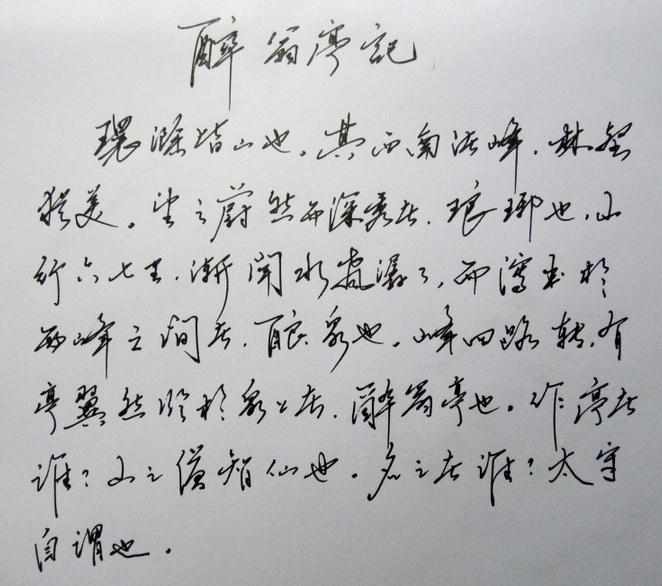 醉翁亭记
環滁皆山也。其西南诸峰，林壑
犹美。望之蔚然而深秀者，琅琊也，山
行六七里，渐闻水声潺々，而泻出於
两峰之间者，酿泉也。峰回路转，有
亭翼然临於泉上者，醉翁亭也。作亭者
谁？山之僧智仙也。名之者谁？太守
自谓也。